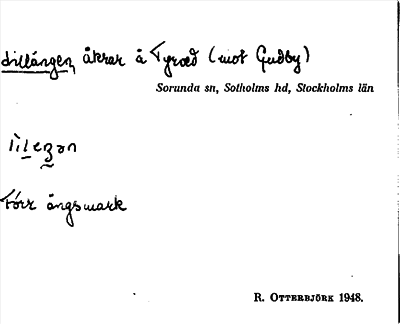 Lillängen, åkrar å Fyrved (mot Gudby)
Sorunda sn, Sotholms hd, Stockholms län
Förr ängsmark
R. OTTERBJÖRK 1948.